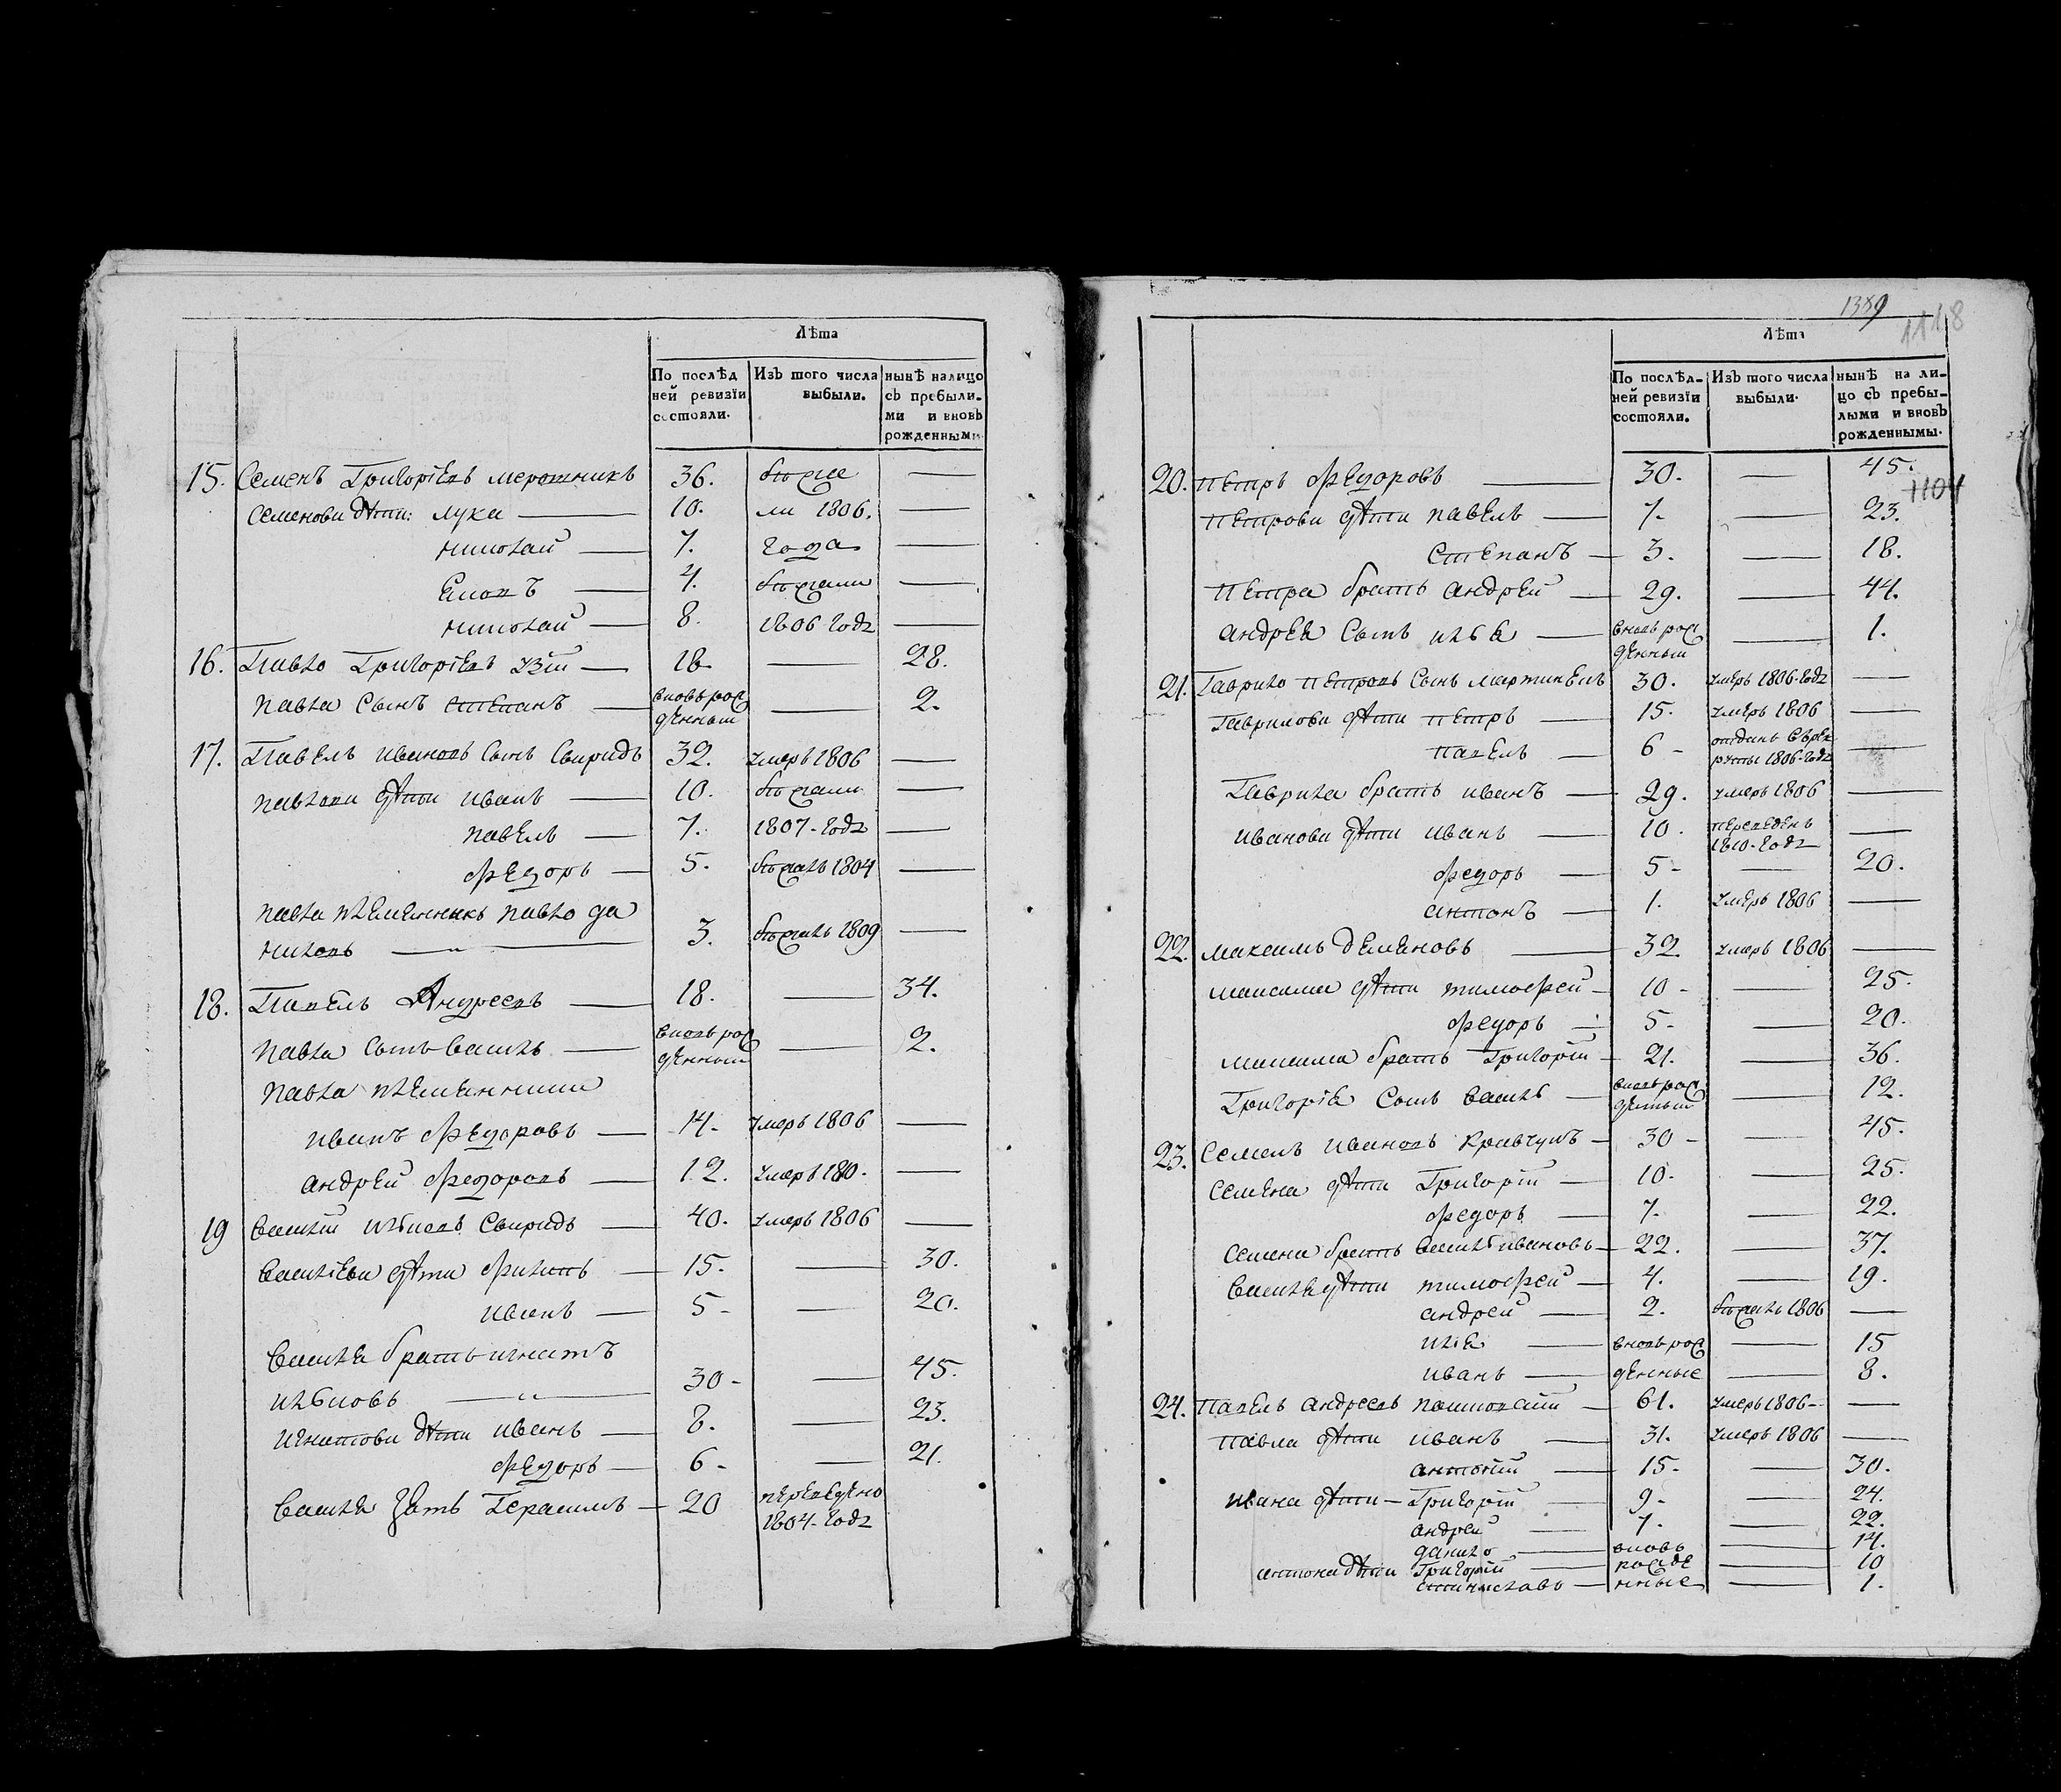 Лѣта
По послѣд Изъ того числа нынѣ налицо
ней ревизїи выбыли. съ прибыли-
состояли. ми и вновь
рожденными
15. Семенъ Григорїевъ 36. бѣже —
Семенови дѣти: лука — 10. ли 1806. —
николай — 7. года —
4. бѣжали —
николай — 8. 1806 годȣ —
16. Павло Григорїевъ — 18 — 28.
Павла Сынъ степанъ — вновь рож — 2.
денный
17. Павелъ Ивановъ Сынъ Свиридъ 32. умеръ 1806 —
Павлови дѣти иванъ — 10. бѣжали —
павелъ — 7. 1807-годȣ —
федоръ — 5. бѣжалъ 1804 —
Павла племенникъ Павло да
ниловъ — 3. бѣжалъ 1809 —
18. Павелъ Андреевъ — 18. — 34.
Павла сынъ василь — вновь рож — 2.
денный
Павла племенники
иванъ федоровъ — 14- умеръ 1806 —
андрей федоровъ — 12. умеръ 180 - —
19 Василїй ильиовъ Свиридъ — 40. умеръ 1806 —
Василїеви дѣти филипъ — 15. — 30.
иванъ — 5- — 20.
Василя братъ игнатъ
ильиовъ — 30- — 45.
игнатови дѣти иванъ — 8. — 23.
федоръ — 6- — 21.
Василя зять Герасимъ — 20 переведено
1804-годȣ
1389
1118
Лѣта
По послѣд- Изъ того числа нынѣ на ли-
ней ревизїи выбыли. цо съ прибы-
состояли. лыми и вновь
рожденнымы.
20. петръ федоровъ — 30. — 45.
1104
петрови дѣти павелъ — 7. — 23.
степанъ — 3. — 18.
петра братъ андрей — 29. — 44.
андрея Сынъ илья — вновь рож — 1.
денный
21. Гаврило петровъ Сынъ мартинецъ 30. умеръ 1806-годȣ —
Гаврилови дѣти петръ — 15. умеръ 1806 —
павелъ — 6 - отданъ въ рек
руты 1806-годȣ —
Гаврила братъ иванъ — 29. умеръ 1806 —
иванови дѣти иванъ — 10. переведенъ —
1810-годȣ
федоръ — 5- — 20.
антонъ — 1. умеръ 1806 —
22. максимъ деменовъ — 32. умеръ 1806 —
максима дѣти тимофей — 10 - — 25.
федоръ — 5- — 20.
максима братъ Григорїй — 21. — 36.
Григорїя Сынъ василь — вновь рож — 12.
денный
23. Семенъ ивановъ кравчунъ — 30 - — 45.
Семена дѣти Григорїй — 10. — 25.
федоръ — 7. — 22.
Семена братъ василь ивановъ — 22. — 37.
Василя дѣти тимофей — 4. — 19.
андрей — 2. бѣжалъ 1806 —
илїя — вновь рож — 15
иванъ — денные — 8.
24. Павелъ андреевъ — 61. умеръ 1806 - —
Павла дѣти иванъ — 31. умеръ 1806 —
антонїй — 15. — 30.
ивана дѣти — Григорїй — 9- — 24.
андрей — 7. — 22.
данило — вновь — 14.
антона дѣти Григорїй — рожде — 10
станиславъ — нные — 1.